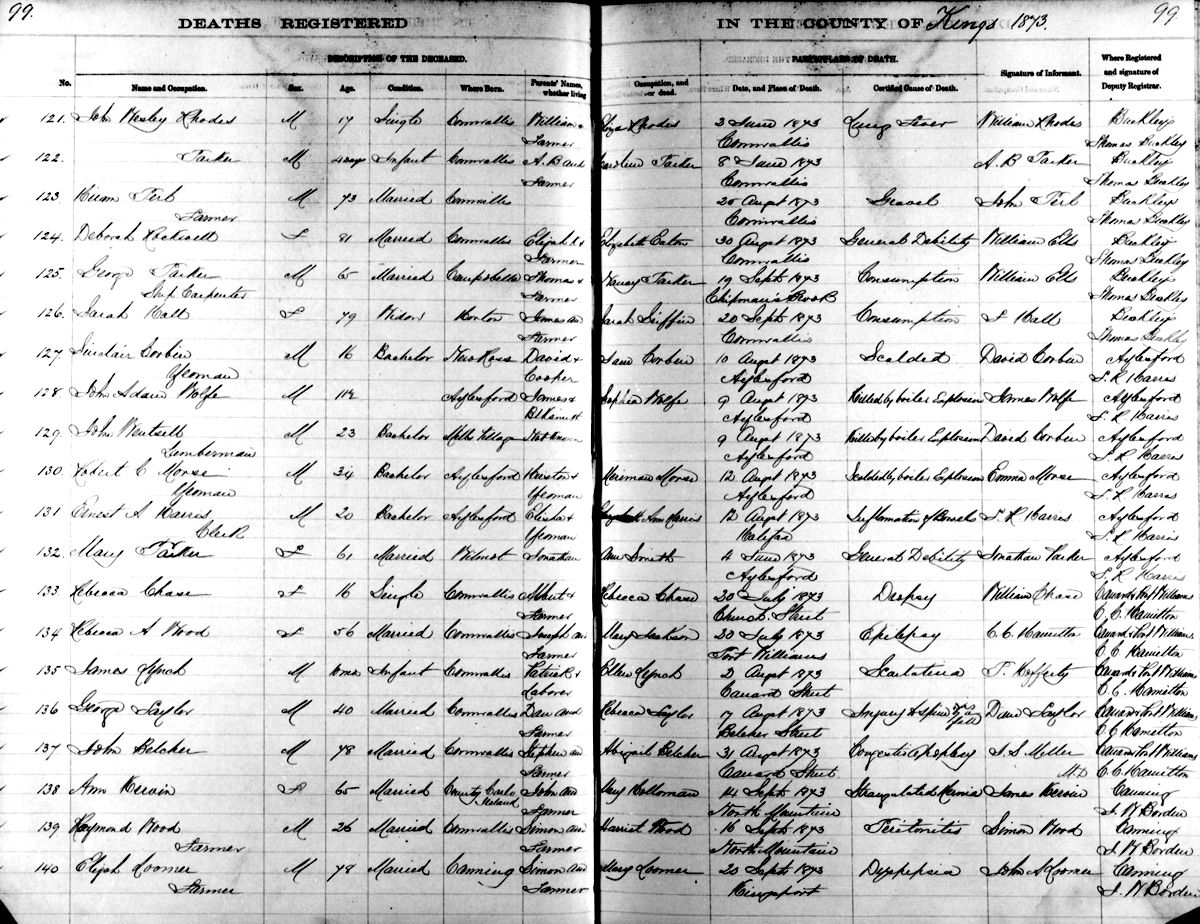 99.
DEATHS REGISTERED IN THE COUNTY OF Kings 1873.
99.
DESCRIPTION OF THE DECEASED. PARTICULARS OF DEATH.
No. Name and Occupation. Sex. Age. Condition. Where Born. Parents' Names, whether living and or dead. Occupation, Date, and Place of Death. Certified Cause of Death. Signature of Informant. Where Registered and signature of Deputy Registrar.
121. John Wesley Rhodes M 17 Single Cornwallis William & Eliza Rhodes 3 June 1873 Lung Fever William Rhodes Buckleys
Farmer Cornwallis Thomas Buckley
122. Parker M 4 days Infant Cornwallis A. B and Caroline Parker 8 June 1873 A. B Parker Buckleys
Farmer Cornwallis Thomas Buckley
123. Hiram M 73 Married Cornwallis 25 Augst 1873 Gravel John Buckleys
Farmer Cornwallis Thomas Buckley
124. Deborah Rockwell F 81 Married Cornwallis Elijah & Elizabeth Eaton 30 Augst 1873 General Debility William Ells Buckleys
Farmer Cornwallis Thomas Buckley
125. George Parker M 65 Married Campobello Thomas & Nancy Parker 19 Sept 1873 Consumption William Ells Buckleys
Ship Carpenter Farmer Chipman's Brook Thomas Buckley
126. Sarah Hall F 79 Widow Horton James and Sarah Griffin 20 Sept 1873 Consumption Hall Buckleys
Farmer Cornwallis Thomas Buckley
127. Sinclair Corbin M 16 Bachelor New Ross David & Jane Corbin 10 Augst 1873 Scalded David Corbin Aylesford
Yeoman Cooper Aylesford S. R Harris
128. John Adam Wolfe M 11½ Aylesford James & Sophia Wolfe 9 Augst 1873 Killed by boiler Explosion James Wolfe Aylesford
Blksmith Aylesford S. R Harris
129. John Wentzell M 23 Bachelor Mill Village Not Known 9 Augst 1873 Killed by boiler Explosion David Corbin Aylesford
Lumberman Aylesford S. R Harris
130. Robert C Morse M 34 Bachelor Aylesford Morse 12 Augst 1873 Scalded by boiler Explosion Emma Morse Aylesford
Yeoman Yeoman Aylesford S. R Harris
131. Ernest A Harris M 20 Bachelor Aylesford Elisha & Ann Harris 12 Augst 1873 Inflamation of Bowels S. R Harris Aylesford
Clerk Yeoman Halifax S. R Harris
132. Mary Parker F 61 Married Wilmot Jonathan Ann Smith 4 June 1873 General Debility Jonathan Parker Aylesford
Aylesford S. R Harris
133. Rebecca Chase F 16 Single Cornwallis Albert & Rebecca Chase 20 July 1873 Dropsy William Chase Canard & Port Williams
Farmer Church Street C. C. Hamilton
134. Rebecca A Wood F 56 Married Cornwallis Joseph and Mary Jackson 20 July 1873 Epilepsy C. C. Hamilton Canard & Port Williams
Farmer Port Williams C. C Hamilton
135. James Lynch M 10 mos Infant Cornwallis Patrick & Ellen Lynch 2 Augst 1873 Scarlatina Canard & Port Williams
Laborer Canard Street C. C. Hamilton
136. George Saylor M 40 Married Cornwallis Dan and Rebecca Saylor 7 Augst 1873 Injury of spine by a fall Dan Saylor Canard & Port Williams
Farmer Belcher Street C. C Hamilton
137. John Belcher M 78 Married Cornwallis Stephen and Abigail Belcher 31 Augst 1873 Congestive Apoplexy Miller Canard & Port Williams
Farmer Canard Street M.D C. C. Hamilton
138. Ann Kerwin F 65 Married County Ireland John and Mary Holloman 14 Sept 1873 Strangulated Hernia James Kerwin Canning
Farmer North Mountain J. W Borden
139. Raymond Wood M 26 Married Cornwallis Simon and Harriet Wood 16 Sept 1873 Peritonitis Simon Wood Canning
Farmer Farmer North Mountain J. W Borden
140. Elijah Loomer M 78 Married Canning Simon and Mary Loomer 20 Sept 1873 Dyspepsia John A Loomer Canning
Farmer Farmer Kingsport J. W Borden